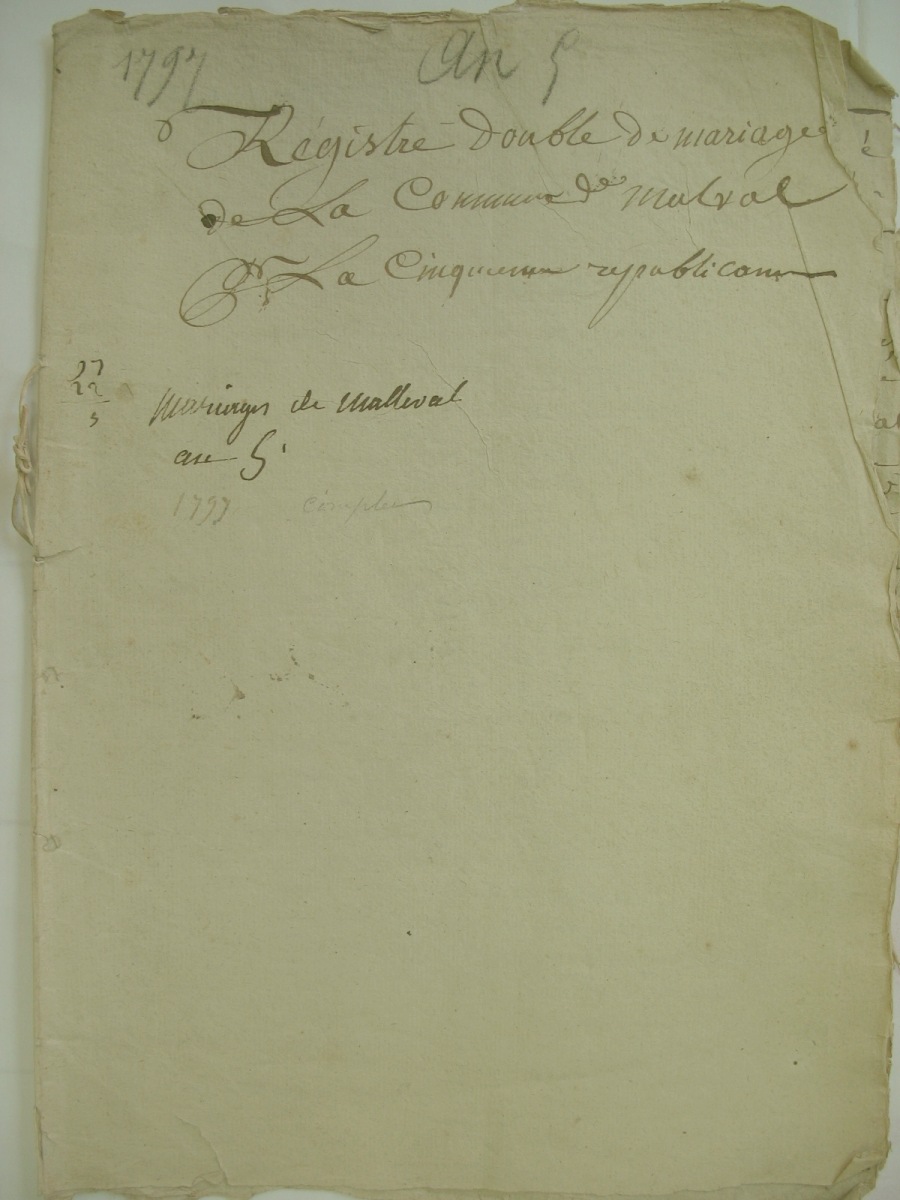 1797 An 5
Régistre double de mariage
de La Commune de malval
Pr La Cinquieme republicane
27
22
5
mariages de malleval
an 5
1797 complet